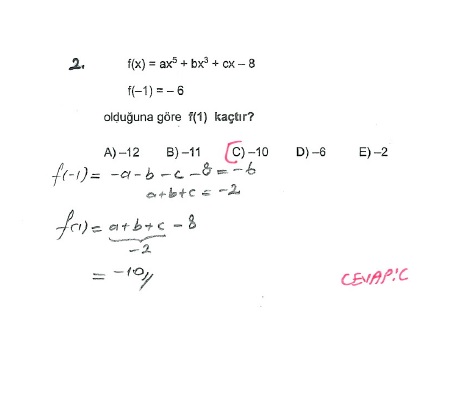 2. f(x) = ax⁵ + bx³ + cx – 8
f(–1) = – 6
olduğuna göre f(1) kaçtır?
A) –12 B) –11 C) –10 D) –6 E) –2
f(-1) = -a - b - c - 8 = -6
a+b+c = -2
f(1) = a+b+c - 8
-2
= -10//
CEVAP:C